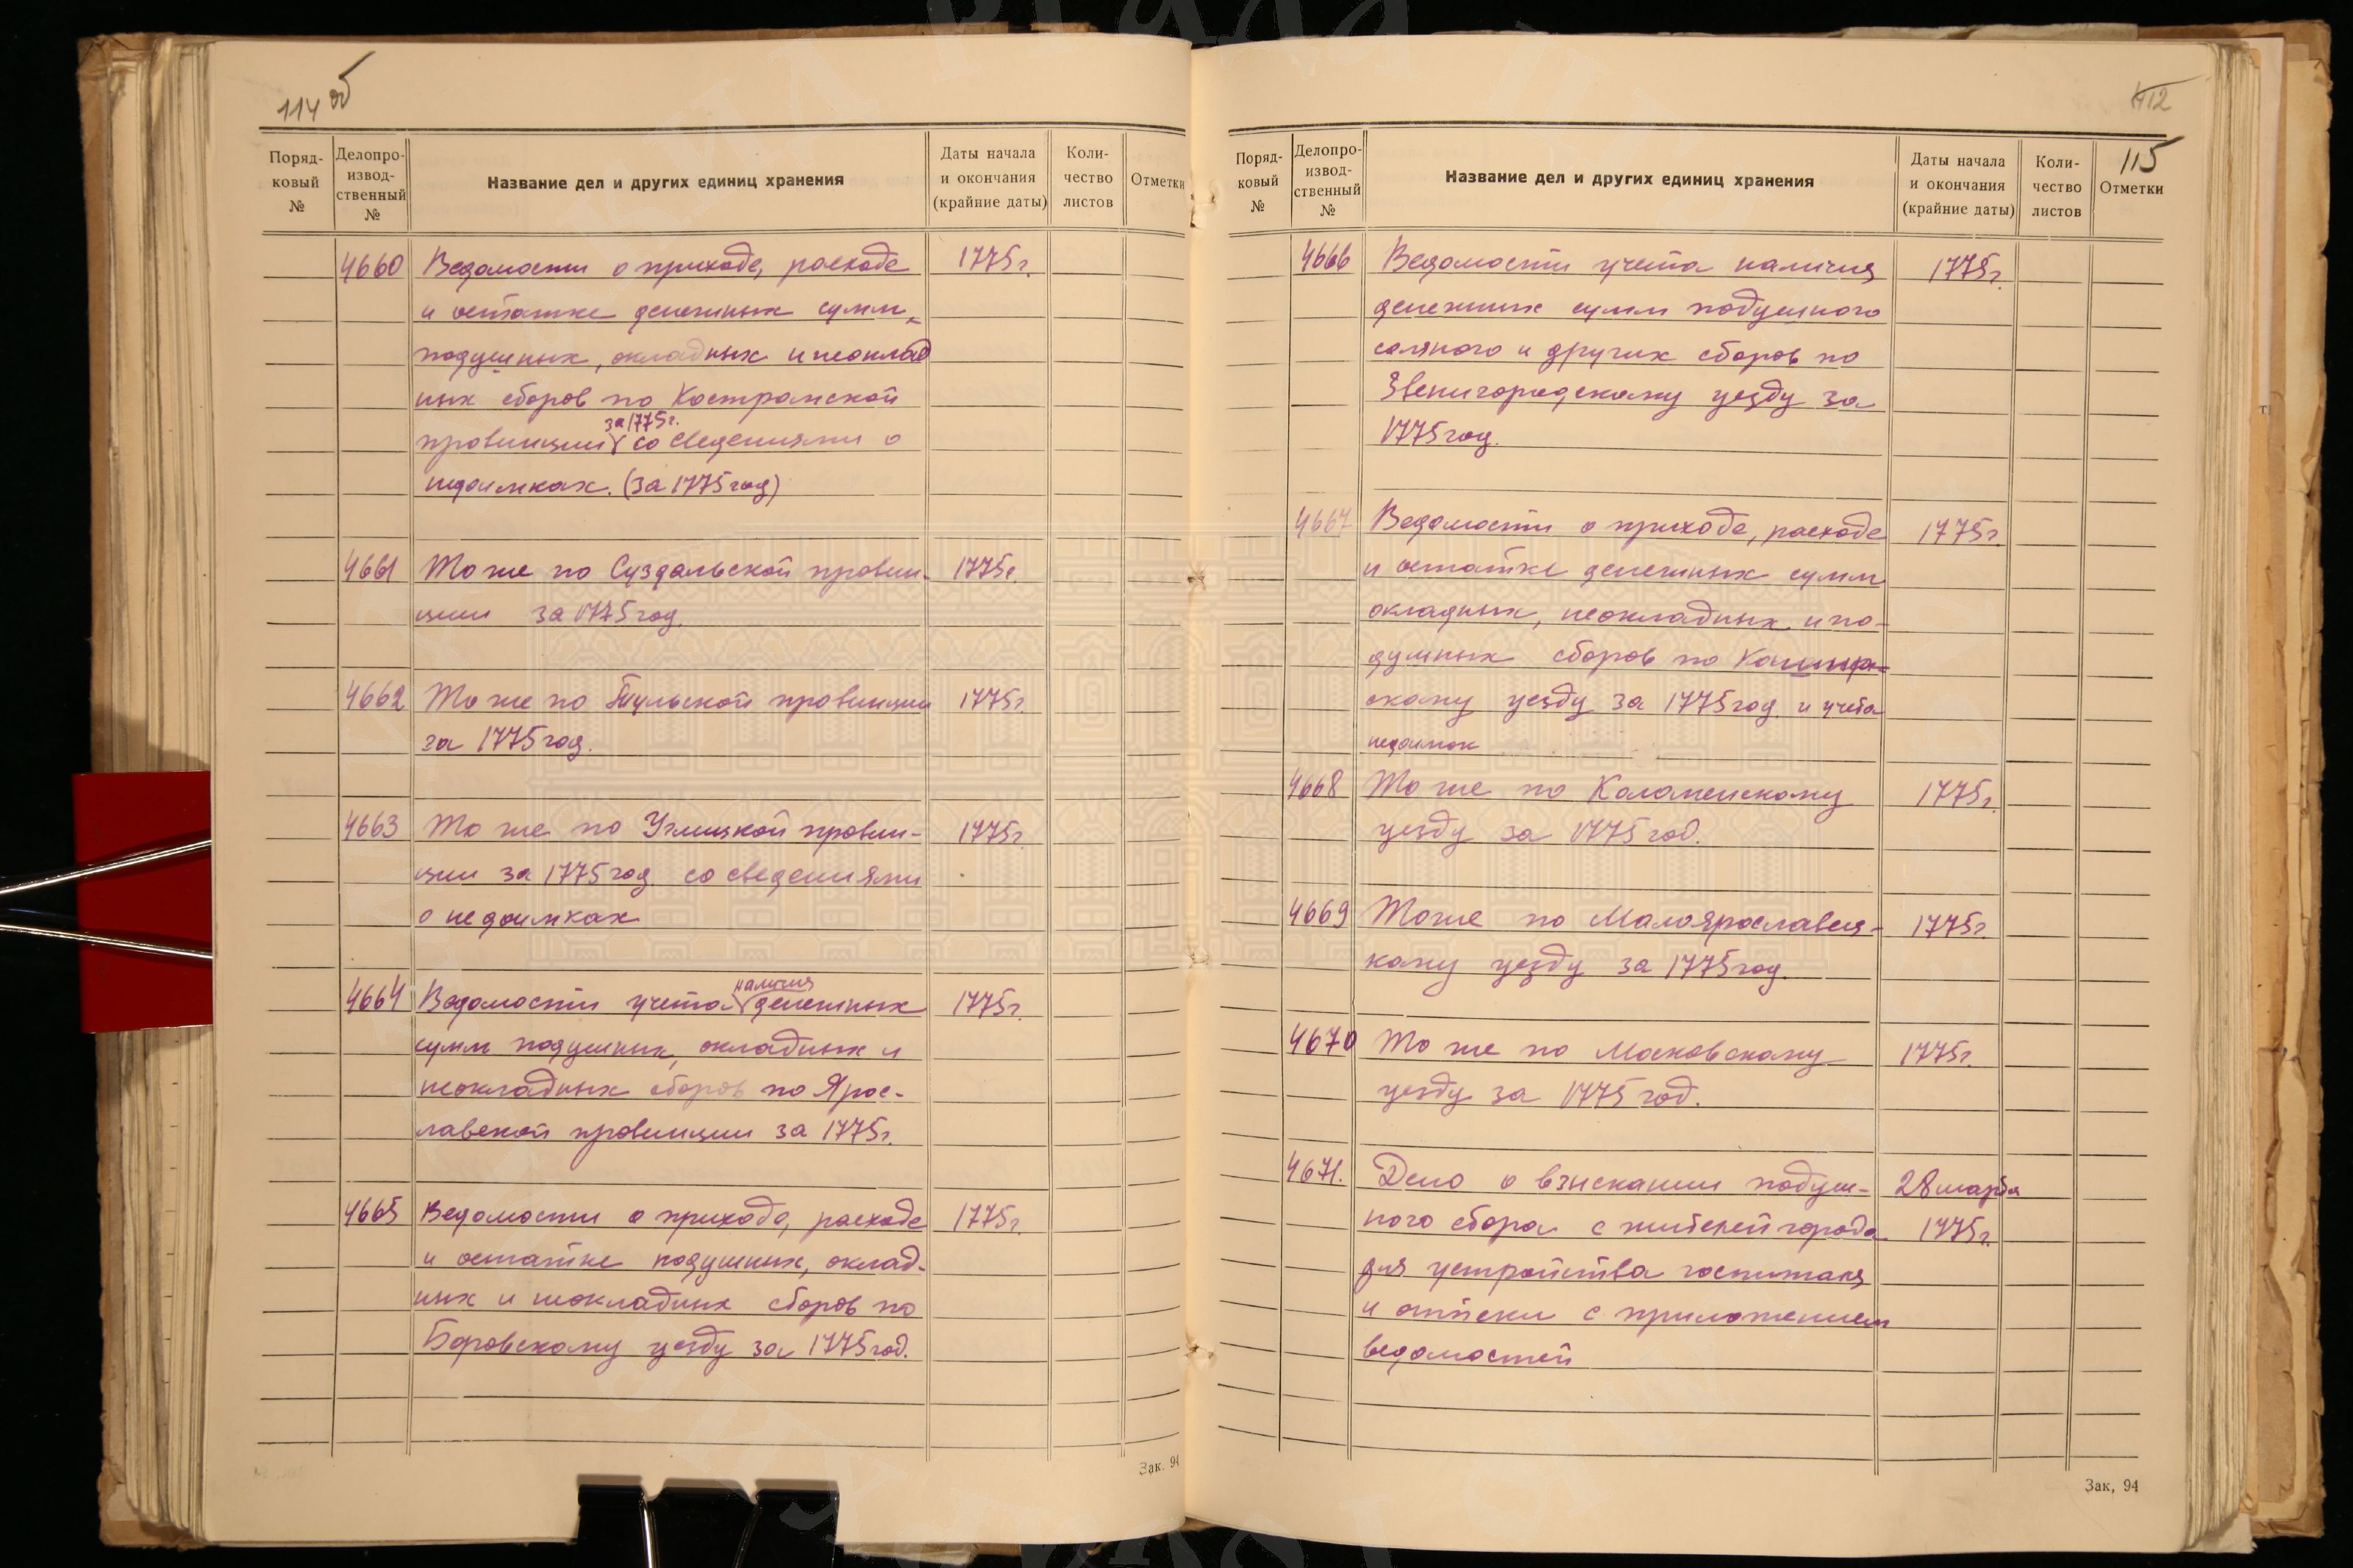 114 об
Поряд-
ковый
№
Делопро-
извод-
ственный
№
Название дел и других единиц хранения
Даты начала
и окончания
(крайние даты)
Коли-
чество
листов
Отметки
4660 Ведомости о приходе, расходе 1775г.
и остатке денежных сумм,
подушных, окладных и неоклад
ных сборов по Костромской
за 1775г.
провинции со сведениями о
недоимках. (за 1775 год)
4661 То же по Суздальской провин- 1775г.
ции за 1775 год.
4662 То же по Тульской провинции 1775г.
за 1775 год.
4663 То же по Углицкой провин- 1775г.
ции за 1775 год со сведениями
о недоимках
наличия
4664 Ведомости учета денежных 1775г.
сумм подушных, окладных и
неокладных сборов по Ярос-
лавской провинции за 1775г.
4665 Ведомости о приходе, расходе 1775г.
и остатке подушных, оклад-
ных и неокладных сборов по
Боровскому уезду за 1775 год.
Зак. 94
112
115
Поряд-
ковый
№
Делопро-
извод-
ственный
№
Название дел и других единиц хранения
Даты начала
и окончания
(крайние даты)
Коли-
чество
листов
Отметки
4666 Ведомости учета наличия 1775г.
денежных сумм подушного
соляного и других сборов по
Звенигородскому уезду за
1775 год.
4667 Ведомости о приходе, расходе 1775г.
и остатке денежных сумм
окладных, неокладных и по-
душных сборов по Кашир-
скому уезду за 1775 год и учета
недоимок
4668 То же по Коломенскому 1775г.
уезду за 1775 год.
4669 То же по Малоярославец- 1775г.
кому уезду за 1775 год.
4670 То же по Московскому 1775г.
уезду за 1775 год.
4671. Дело о взыскании подуш- 28 марта
ного сбора с жителей города 1775г.
для устройства госпиталя
и аптеки с приложением
ведомостей
Зак. 94